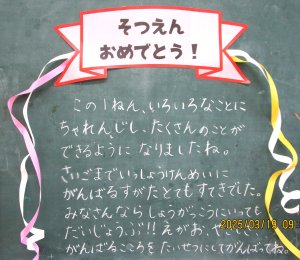 そつえん
おめでとう!
この1ねん、いろいろなことに
ちゃれんじし、たくさんのことが
できるように なりましたね。
さいごまでいっしょうけんめいに
がんばるすがたとてもすてきでした。
みなさんなら しょうがっこうにいっても
だいじょうぶ!! えがお、
がんばるこころを たいせつにしてがんばってね。
2025/03/19 09